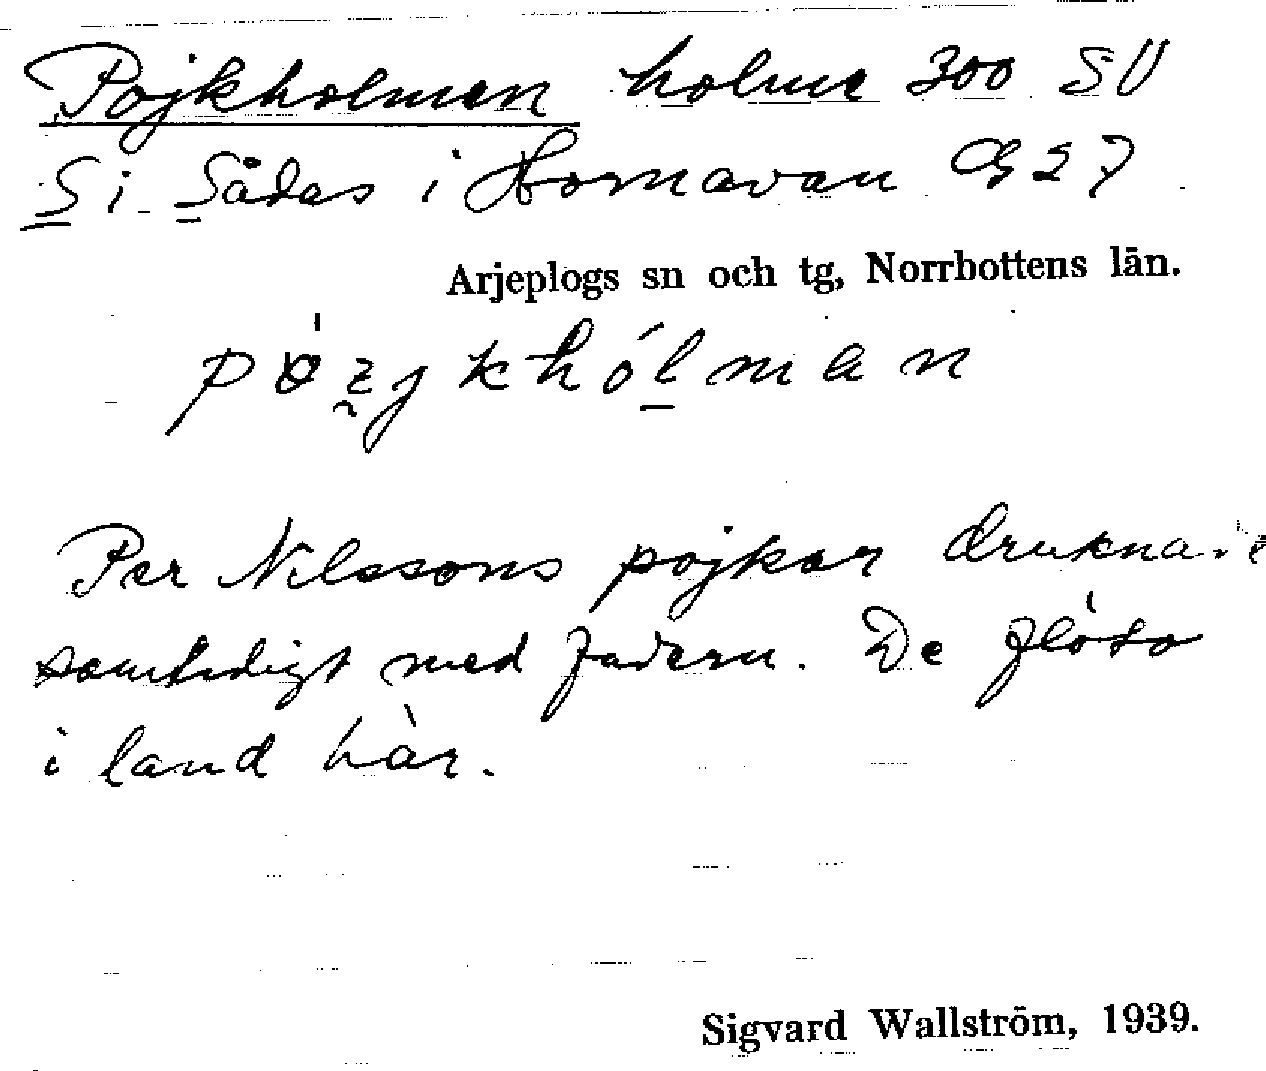 Pojkholmen holme 300 SV
S i Sådas i Hornavan G 27
Arjeplogs sn och tg, Norrbottens län.
Per Nilssons pojkar druknade
samtidigt med fadern. De flöto
i land här.
Sigvard Wallström, 1939.